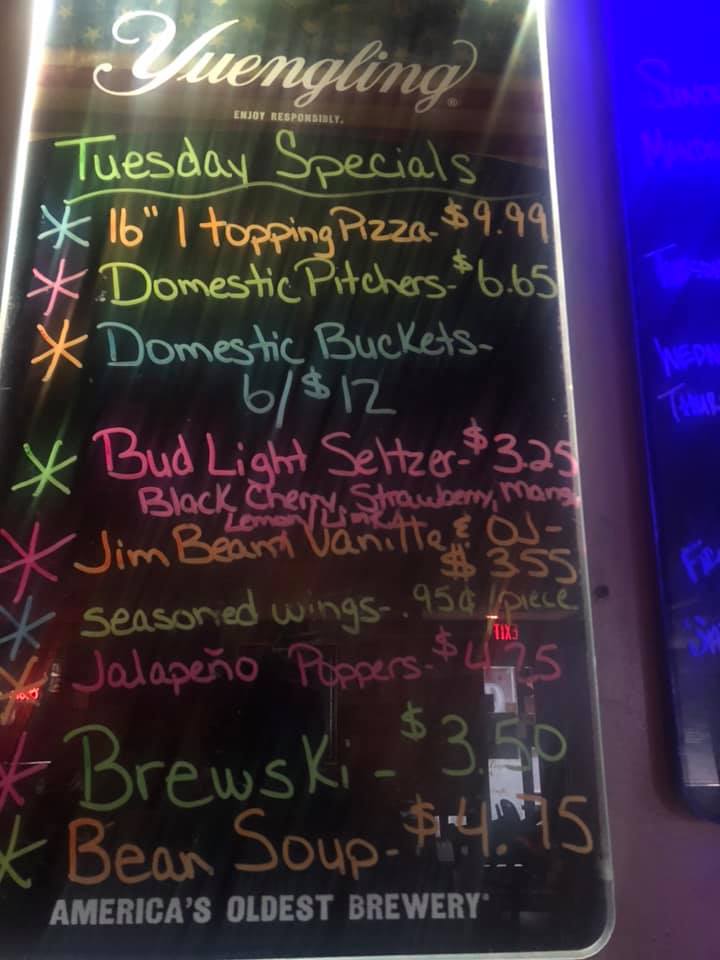 Yuengling®
ENJOY RESPONSIBLY.
Tuesday Specials
16" 1 topping Pizza-$9.99
Domestic Pitchers-$6.65
Domestic Buckets-
6/$12
Bud Light Seltzer-$3.25
Black Cherry, Strawberry, Mang
Lemon/Lime
Jim Beam Vanilla & OJ-
$3.55
seasoned wings-.95¢ 1piece
EXIT
Jalapeño Poppers-$4.25
Brewski-$3.50
Bean Soup-$4.75
AMERICA'S OLDEST BREWERY